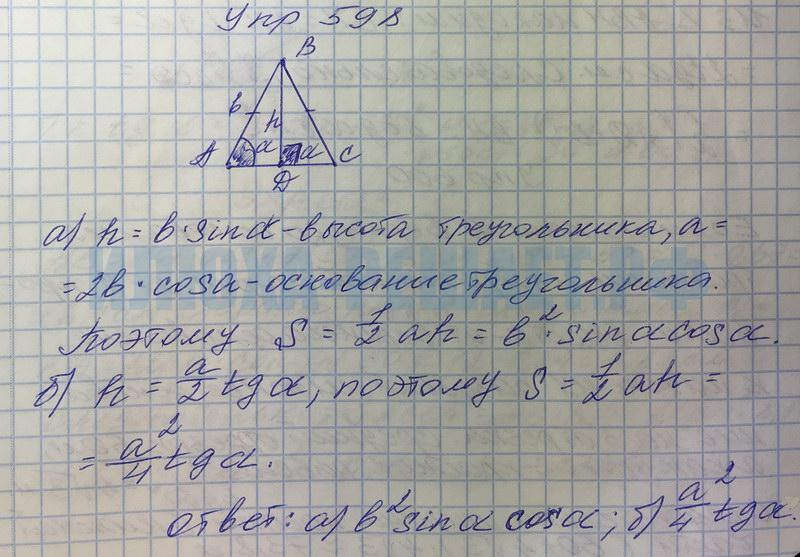 Упр 598
B
b
h
A α α C
D
а) h = b·sinα - высота треугольника, a =
= 2b·cosα - основание треугольника.
Поэтому S = 1/2 ah = b²·sinα cosα.
б) h = a/2 tgα, поэтому S = 1/2 ah =
= a²/4 tgα.
ответ: а) b² sinα cosα; б) a²/4 tgα.